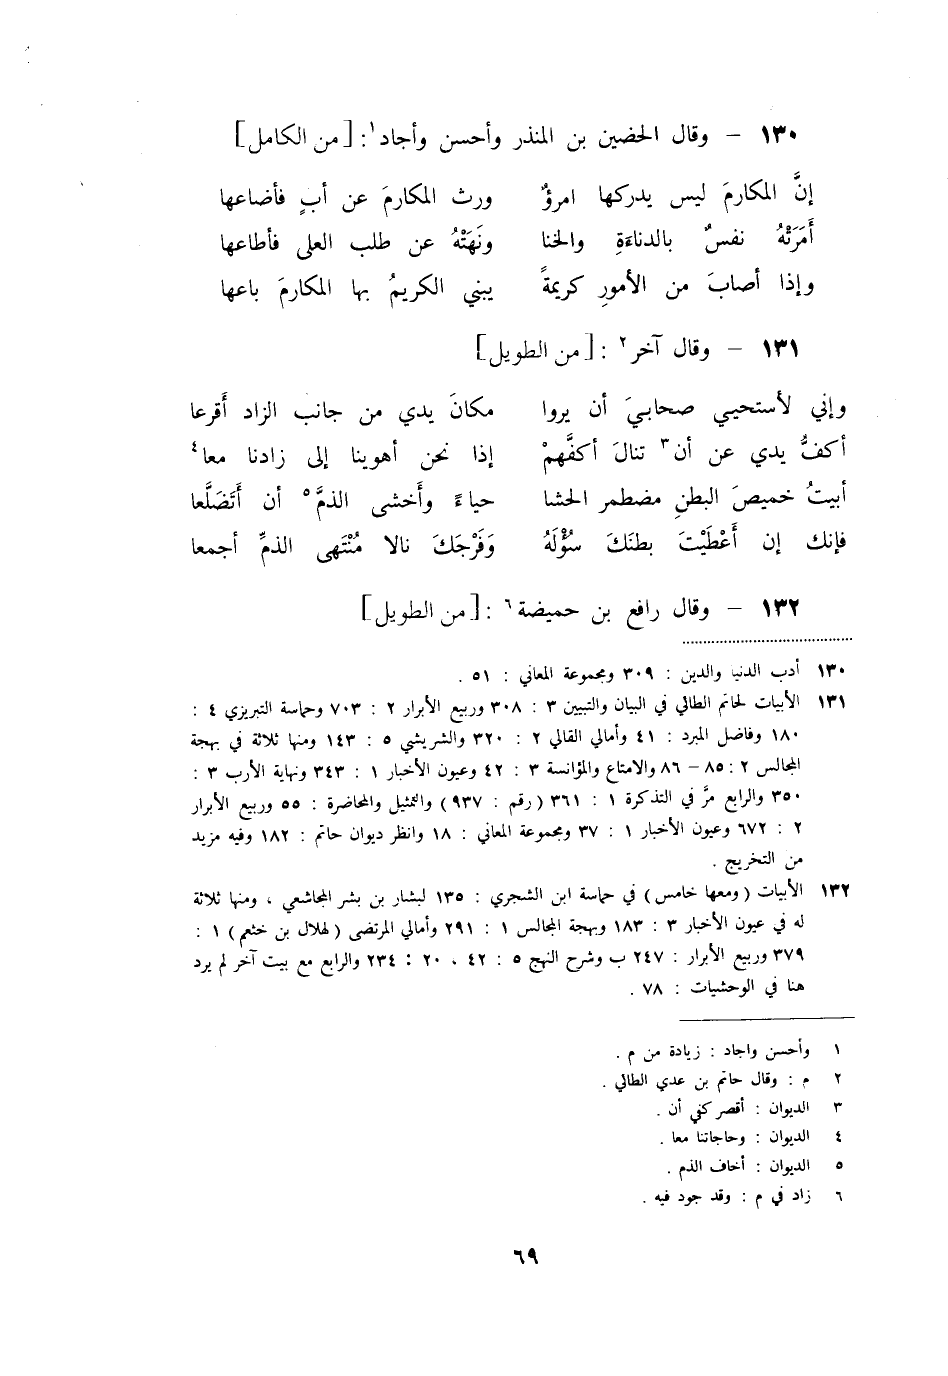 ١٣٠ – وقال الحضين بن المنذر وأحسن وأجاد١: [من الكامل]
إنَّ المكارمَ ليس يدركها امرؤٌ ورث المكارمَ عن أبٍ فأضاعها
أَمَرَتْهُ نفسٌ بالدناءَةِ والخنا ونَهَتْهُ عن طلب العلى فأطاعها
وإذا أصابَ من الأمورِ كريمةً يبني الكريمُ بها المكارمَ باعها
١٣١ – وقال آخر٢ : [من الطويل]
وإني لأستحيي صحابيَ أن يروا مكانَ يدي من جانب الزاد أَقرعا
أكفُّ يدي عن أن٣ تنالَ أكفَّهمْ إذا نحن أهوينا إلى زادنا معا٤
أبيتُ خميصَ البطنِ مضطمر الحشا حياءً وأَخشى الذمَّ٥ أن أَتَضَلَّعا
فإنك إن أَعْطَيْتَ بطنَكَ سُؤْلَهُ وَفَرْجَكَ نالا مُنْتَهى الذمِّ أجمعا
١٣٢ – وقال رافع بن حميضة٦ : [من الطويل]
١٣٠ أدب الدنيا والدين : ٣٠٩ ومجموعة المعاني : ٥١ .
١٣١ الأبيات لحاتم الطائي في البيان والتبيين ٣ : ٣٠٨ وربيع الأبرار ٢ : ٧٠٣ وحماسة التبريزي ٤ :
١٨٠ وفاضل المبرد : ٤١ وأمالي القالي ٢ : ٣٢٠ والشريشي ٥ : ١٤٣ ومنها ثلاثة في بهجة
المجالس ٢ : ٨٥ – ٨٦ والامتاع والمؤانسة ٣ : ٤٢ وعيون الأخبار ١ : ٣٤٣ ونهاية الأرب ٣ :
٣٥٠ والرابع مرَّ في التذكرة ١ : ٣٦١ (رقم : ٩٣٧) والتمثيل والمحاضرة : ٥٥ وربيع الأبرار
٢ : ٦٧٢ وعيون الأخبار ١ : ٣٧ ومجموعة المعاني : ١٨ وانظر ديوان حاتم : ١٨٢ وفيه مزيد
من التخريج .
١٣٢ الأبيات (ومعها خامس) في حماسة ابن الشجري : ١٣٥ لبشار بن بشر المجاشعي ، ومنها ثلاثة
له في عيون الأخبار ٣ : ١٨٣ وبهجة المجالس ١ : ٢٩١ وأمالي المرتضى (لهلال بن خثعم) ١ :
٣٧٩ وربيع الأبرار : ٢٤٧ ب وشرح النهج ٥ : ٤٢ ، ٢٠ : ٢٣٤ والرابع مع بيت آخر لم يرد
هنا في الوحشيات : ٧٨ .
١ وأحسن واجاد : زيادة من م .
٢ م : وقال حاتم بن عدي الطائي .
٣ الديوان : أقصر كفي أن .
٤ الديوان : وحاجاتنا معا .
٥ الديوان : أخاف الذم .
٦ زاد في م : وقد جود فيه .
٦٩